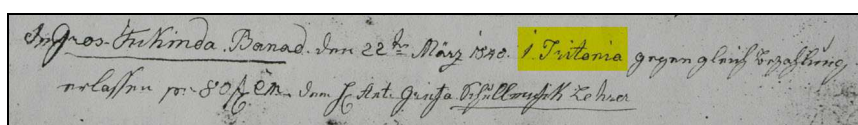 In Gros-Kikinda. Banad. den 22ten März 1840. 1 Tritonia gegen gleich bezahlung.
erlassen pr 80 f C.M. dem H. Ant. Schullmusik Lehrer